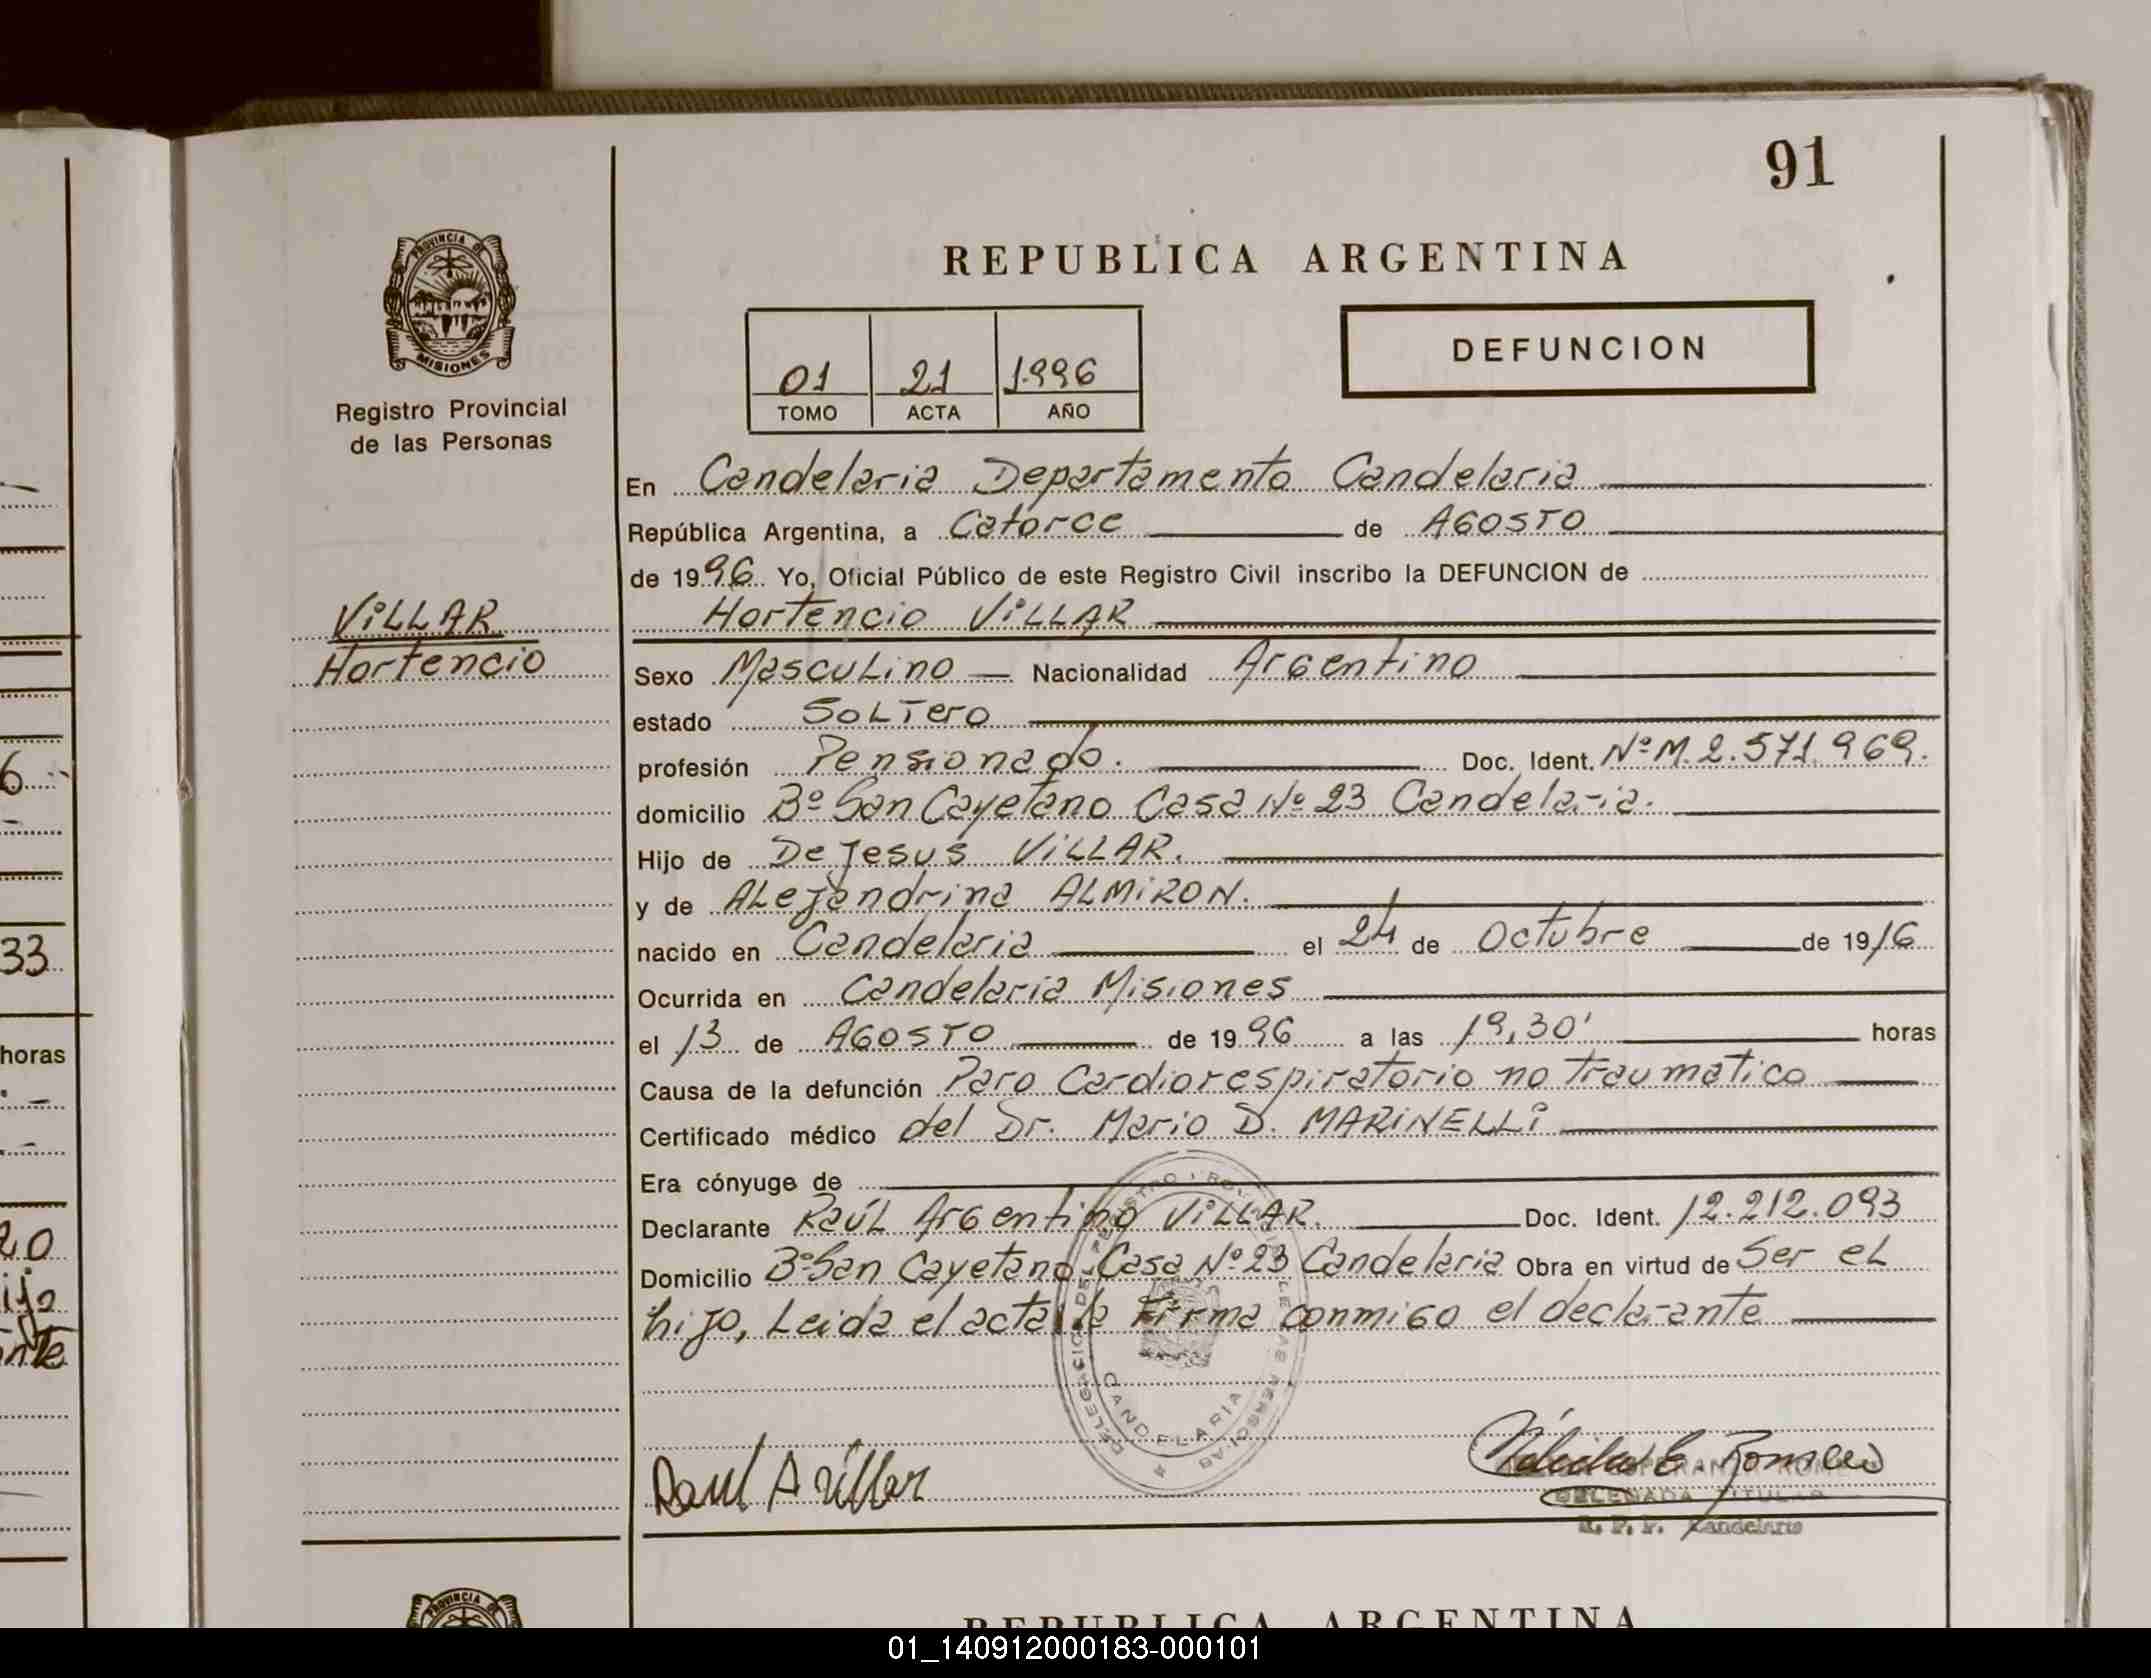 91
REPUBLICA ARGENTINA
PROVINCIA DE
MISIONES
Registro Provincial
de las Personas
DEFUNCION
01 21 1.996
TOMO ACTA AÑO
En Candelaria Departamento Candelaria
República Argentina, a Catorce de AGOSTO
de 1996 Yo, Oficial Público de este Registro Civil inscribo la DEFUNCION de
VILLAR
Hortencio VILLAR
Hortencio
Sexo Masculino Nacionalidad Argentino
estado Soltero
profesión Pensionado. Doc. Ident. Nº M. 2.571.969.
domicilio Bº San Cayetano Casa Nº 23 Candelaria.
Hijo de De Jesus VILLAR.
y de Alejandrina ALMIRON.
nacido en Candelaria el 24 de Octubre de 1916
Ocurrida en Candelaria Misiones
el 13 de AGOSTO de 1996 a las 19,30' horas
Causa de la defunción Paro Cardiorespiratorio no traumatico
Certificado médico del Dr. Mario D. MARINELLI
Era cónyuge de
Declarante Raúl Argentino VILLAR. Doc. Ident. 12.212.093
Domicilio Bº San Cayetano Casa Nº 23 Candelaria Obra en virtud de Ser el
hijo, Leida el acta la Firma conmigo el declarante
CANDELARIA
Raul A Villar
DELEGADA TITULAR
R. P. P. Candelaria
6
33
horas
20
hijo
REPUBLICA ARGENTINA
01_140912000183-000101